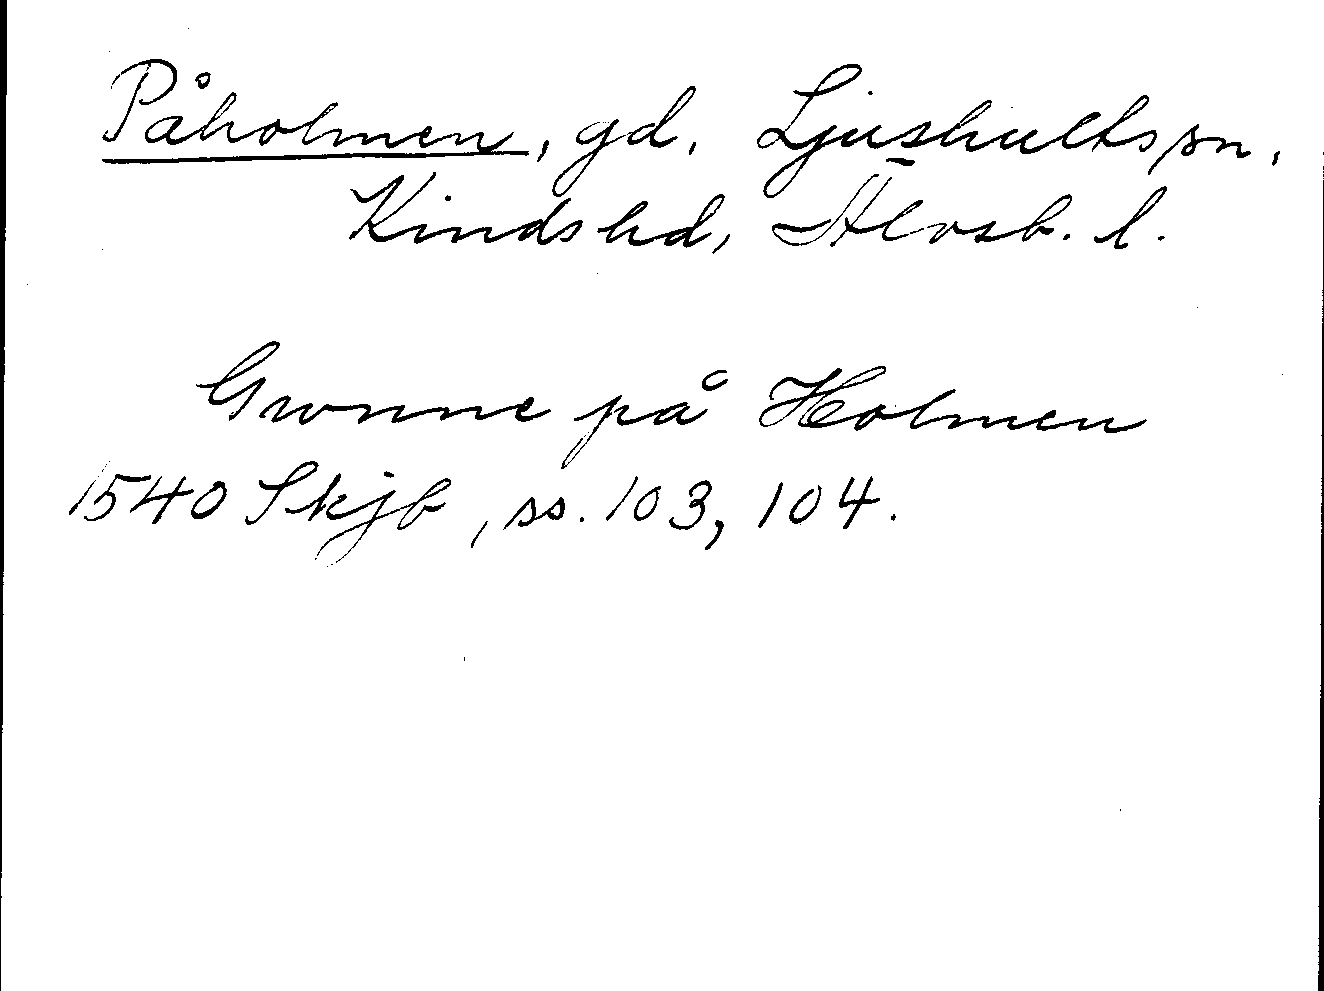 Påholmen, gd, Ljushults sn,
Kinds hd, Älvsb. l.
Gunne på Holmen
1540 Skjb, ss. 103, 104.